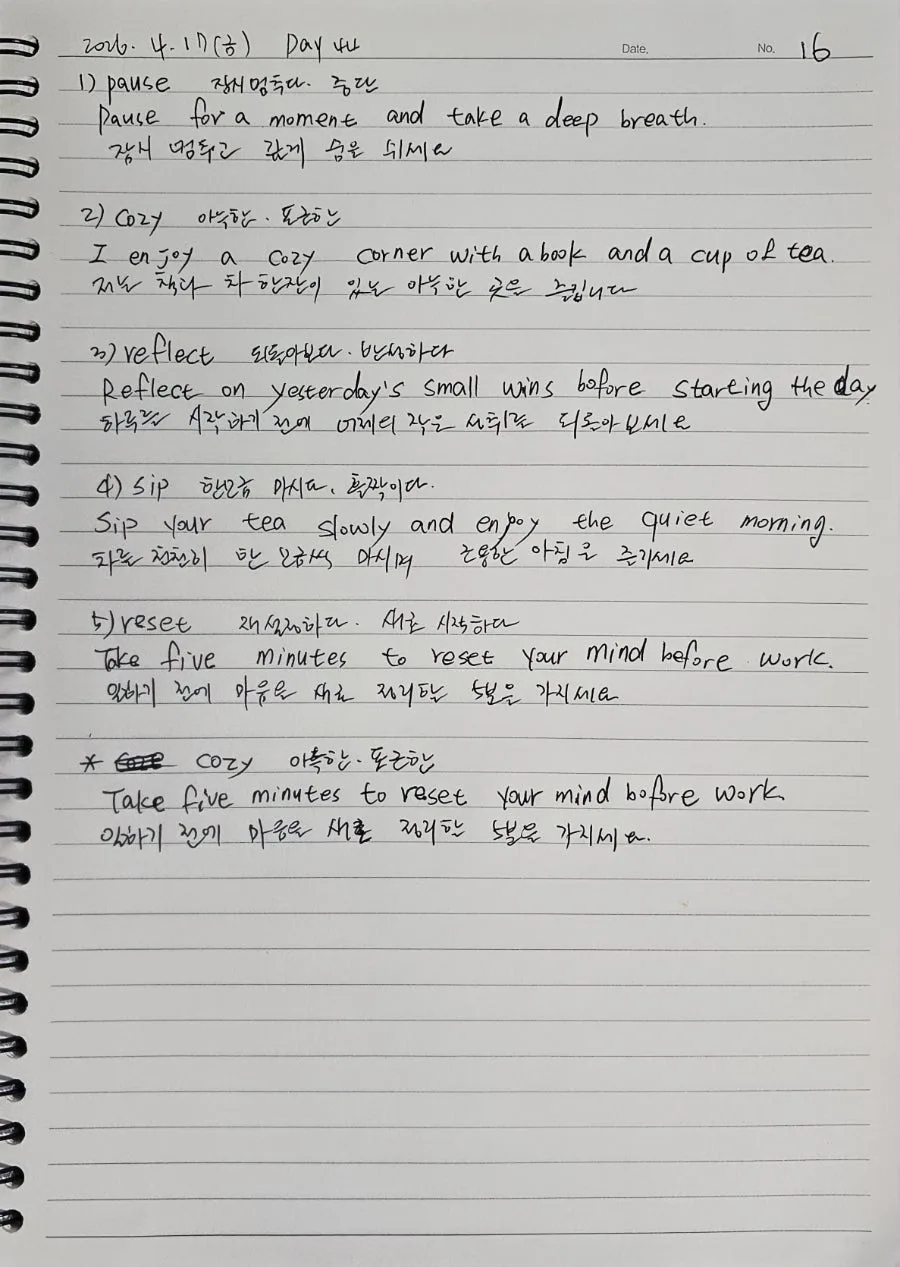 2026. 4. 17(금) Day 44 Date. No. 16
1) pause 잠시멈추다. 중단
Pause for a moment and take a deep breath.
잠시 멈추고 깊게 숨을 쉬세요
2) cozy 아늑한. 포근한
I enjoy a cozy corner with a book and a cup of tea.
저는 책과 차 한잔이 있는 아늑한 곳을 즐깁니다
3) reflect 되돌아보다. 반성하다
Reflect on yesterday's small wins bofore starting the day
하루를 시작하기 전에 어제의 작은 성취를 되돌아보세요
4) sip 한모금 마시다. 홀짝이다.
Sip your tea slowly and enjoy the quiet morning.
차를 천천히 한 모금씩 마시며 조용한 아침을 즐기세요
5) reset 재설정하다. 새로 시작하다
Take five minutes to reset your mind before work.
일하기 전에 마음을 새로 정리할 5분을 가지세요
* cozy 아늑한. 포근한
Take five minutes to reset your mind before work
일하기 전에 마음을 새로 정리할 5분을 가지세요.